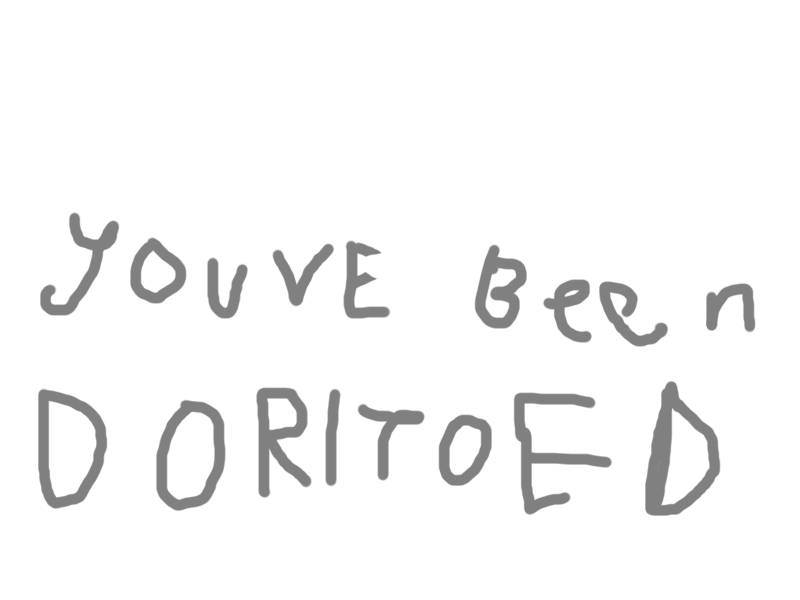 YOUVE Been
DORITOED